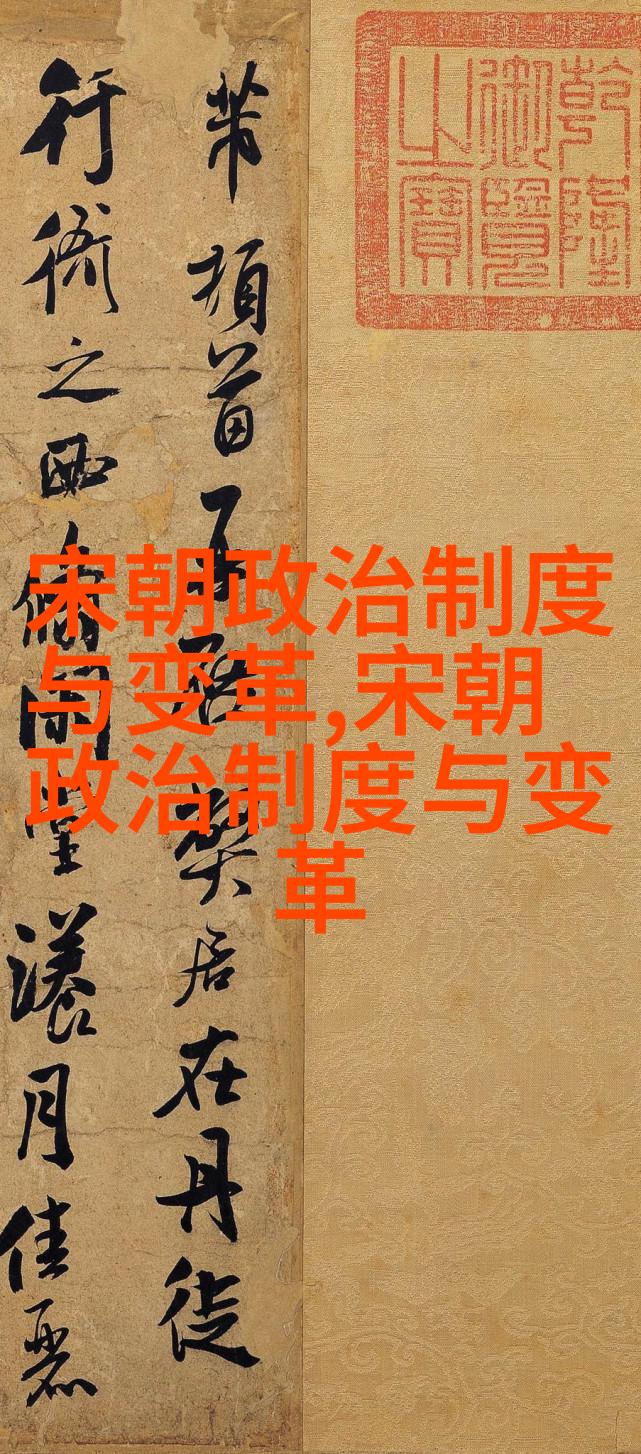 乾隆
御覽
之寶
芾頓首再啓弊居在丹徒
行衙之西翛閑堂漾月佳麗
宋朝政治制度
与变革,宋朝
政治制度与变
革